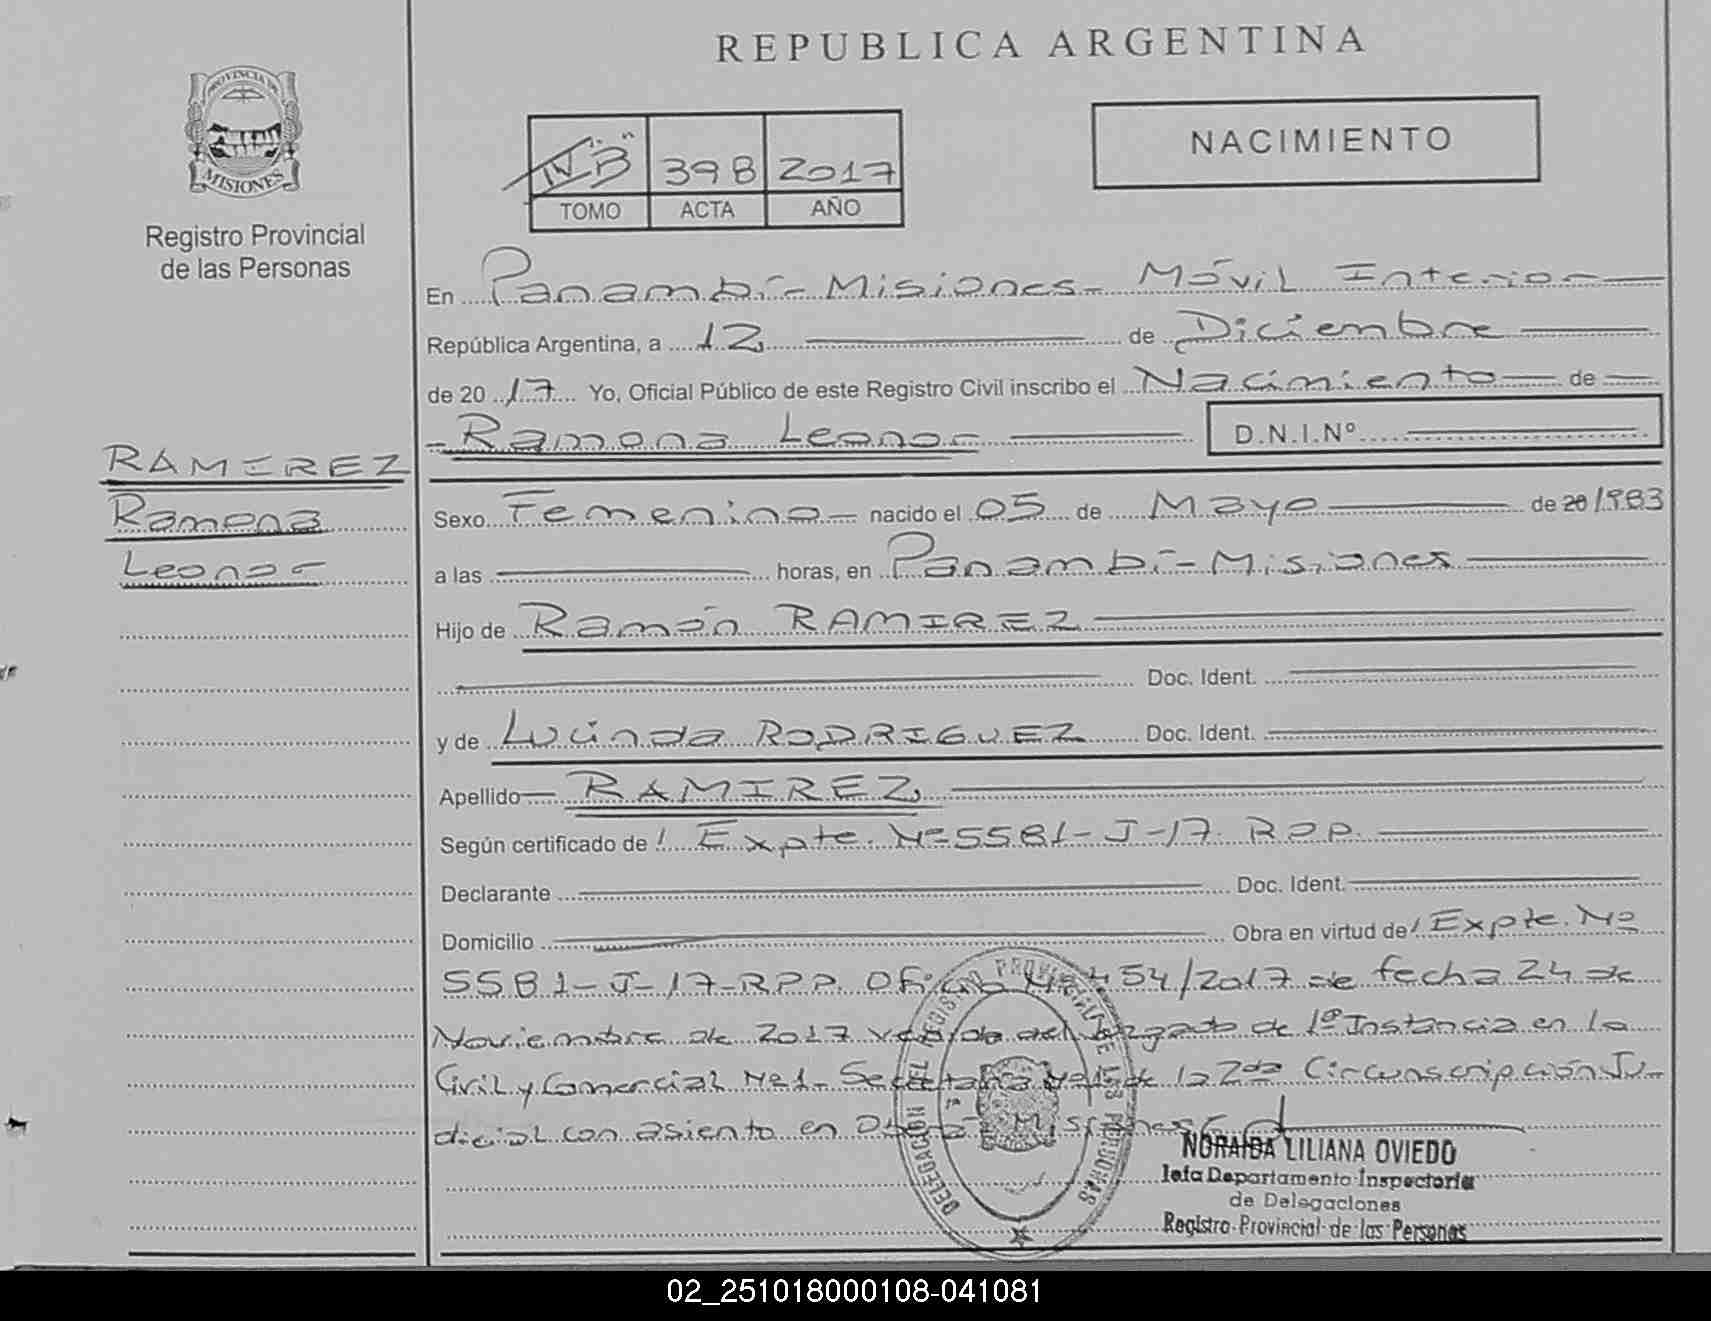 REPUBLICA ARGENTINA
PROVINCIA DE
MISIONES
Registro Provincial
de las Personas
IV B 398 2017
TOMO ACTA AÑO
NACIMIENTO
En Panambí - Misiones - Móvil Interior
República Argentina, a 12 de Diciembre
de 2017 Yo, Oficial Público de este Registro Civil inscribo el Nacimiento de
- Ramona Leonor D.N.I.Nº
RAMIREZ
Ramona
Leonor
Sexo Femenino nacido el 05 de Mayo de 20 1983
a las horas, en Panambí - Misiones
Hijo de Ramón RAMIREZ
Doc. Ident.
y de Lucinda RODRIGUEZ Doc. Ident.
Apellido RAMIREZ
Según certificado de / Expte. Nº 5581-J-17 RPP.
Declarante Doc. Ident.
Domicilio Obra en virtud de / Expte. Nº
5581-J-17-RPP. Oficio Nº 454/2017 de fecha 24 de
Noviembre de 2017 del Juzgado de 1º Instancia en lo
Civil y Comercial Nº1 - Secretaría Nº1 de la 2da Circunscripción Ju-
dicial con asiento en Oberá - Misiones
DELEGACION DEL REGISTRO PROVINCIAL DE LAS PERSONAS
NORAIDA LILIANA OVIEDO
Jefa Departamento Inspectoría
de Delegaciones
Registro Provincial de las Personas
02_251018000108-041081